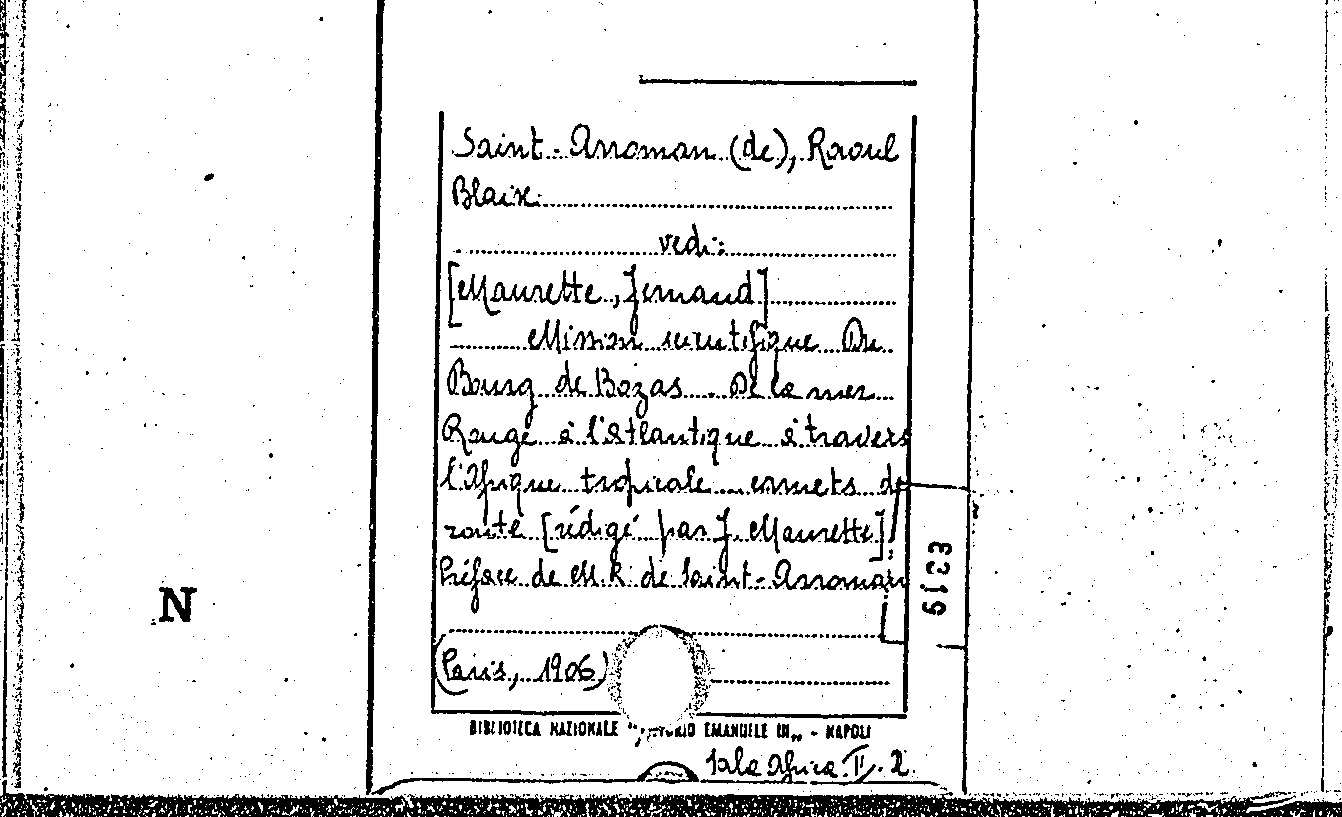 Saint-Arroman (de), Raoul
Blaix.
vedi:
[Maurette, Fernand]
Mission scientifique Du
Bourg de Bozas. De la mer
Rouge à l'Atlantique à travers
l'Afrique tropicale carnets de
route [rédigé par F. Maurette]
Préface de M. R. de Saint-Arroman
(Paris, 1906)
BIBLIOTECA NAZIONALE "VITTORIO EMANUELE III" - NAPOLI
Sala Africa II. 2
6123
N